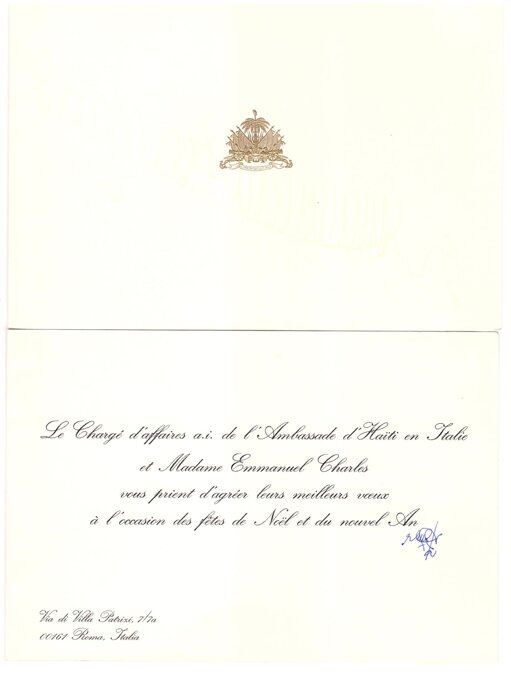 Le Chargé d'affaires a.i. de l'Ambassade d'Haïti en Italie
et Madame Emmanuel Charles
vous prient d'agréer leurs meilleurs vœux
à l'occasion des fêtes de Noël et du nouvel An
Via di Villa Patrizi, 7/7a
00161 Roma, Italia